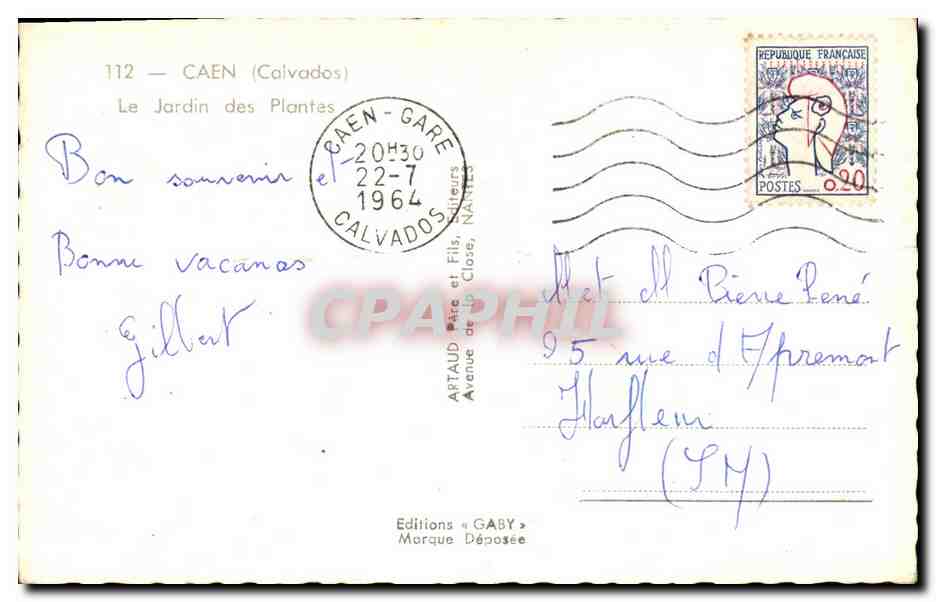 112 — CAEN (Calvados)
Le Jardin des Plantes
Bon souvenir et
Bonne vacances
Gilbert
CAEN - GARE
20H30
22-7
1964
CALVADOS
REPUBLIQUE FRANÇAISE
POSTES
0.20
ARTAUD Père et Fils, Editeurs
Avenue de la Close, NANTES
CPAPHIL
M et M Pierre René
25 rue d'Apremont
Harfleur
(SM)
Editions « GABY »
Marque Déposée